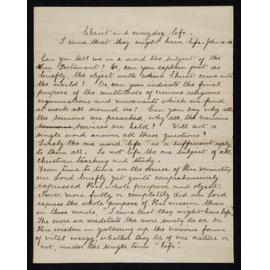 Christ and everyday life.
I came that they might have life. John 10.10
Can you tell me in a word the subject of the
New Testament? Or can you explain just as
briefly the object with which Christ came into
the world? Or can you indicate the final
purpose of the multitude of various religious
organisations and movements which we find
at work all around us? Can you say why all
the sermons are preached, why all the various
services are held? Will not a
single word answer all these questions?
Surely the one word "life" is a sufficient reply
to them all. Is not life the subject of all
Christian teaching and study.
From time to time in the course of His ministry
our Lord briefly yet quite comprehensively
expressed His object, purpose and object.
Never more fully or completely did our Lord
express the whole purpose of His mission than
in these words. I came that they might have life.
The more we meditate the more surely do we see
His wisdom in gathering up the various forms
of vital energy, whether they be of one nature or
not, under the single term "life".